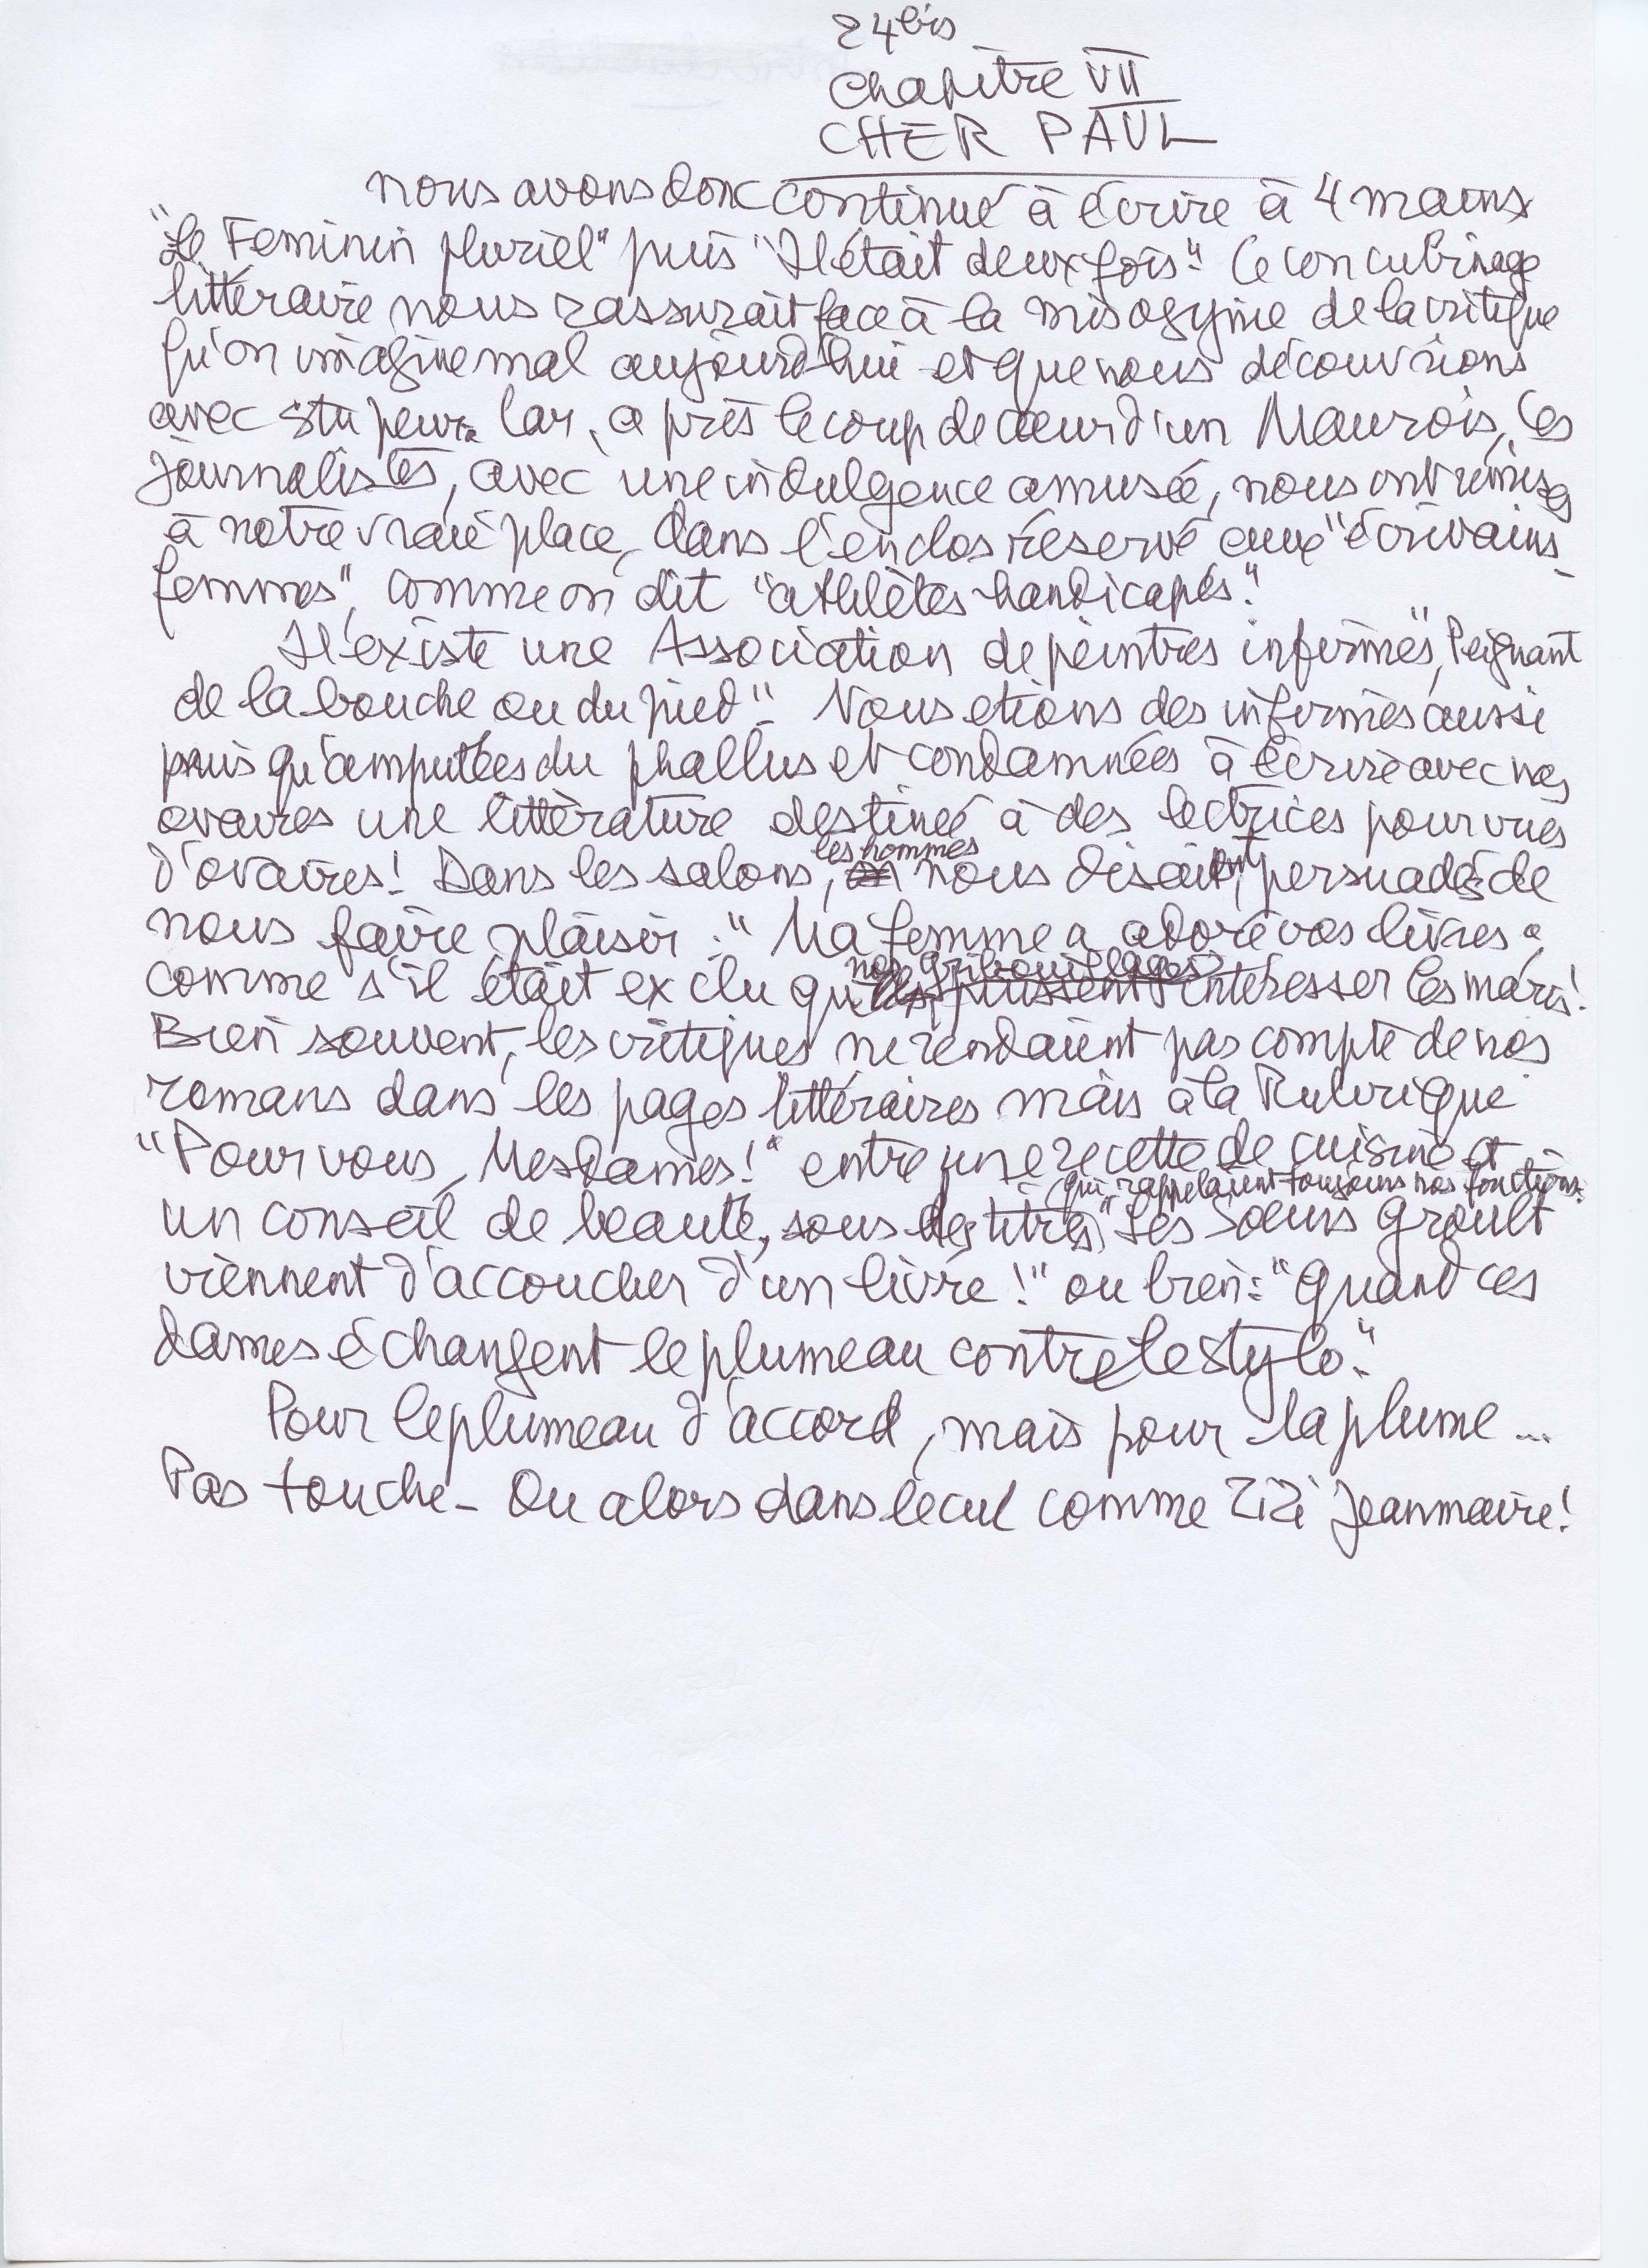 24 bis
Chapitre VII
CHER PAUL
Nous avons donc continué à écrire à 4 mains
"Le Feminin pluriel" puis "Il était deux fois". Ce concubinage
littéraire nous rassurait face à la misogynie de la critique
qu'on imagine mal aujourd'hui et que nous découvrions
avec stupeur. Car, après le coup de cœur d'un Maurois, les
journalistes, avec une indulgence amusée, nous ont remises
à notre vraie place, dans l'enclos réservé aux "écrivains-
femmes", comme on dit "athlètes handicapés".
Il existe une Association de peintres infirmes, "Peignant
de la bouche ou du pied". Nous etions des infirmes aussi
puis qu'amputées du phallus et condamnées à écrire avec nos
ovaires une littérature destinée à des lectrices pourvues
d'ovaires! Dans les salons, les hommes nous disaient, persuadés de
nous faire plaisir : "Ma femme a adoré vos livres",
comme s'il était exclu que nos gribouillages puissent intéresser les maris!
Bien souvent, les critiques ne rendaient pas compte de nos
romans dans les pages littéraires mais à la Rubrique
"Pour vous, Mesdames!" entre une recette de cuisine et
un conseil de beauté, sous des titres (qui rappelaient toujours nos fonctions) "Les Soeurs Groult
viennent d'accoucher d'un livre!" ou bien : "Quand ces
dames échangent le plumeau contre le stylo."
Pour le plumeau d'accord, mais pour la plume ...
Pas touche - Ou alors dans le cul comme Zizi Jeanmaire!